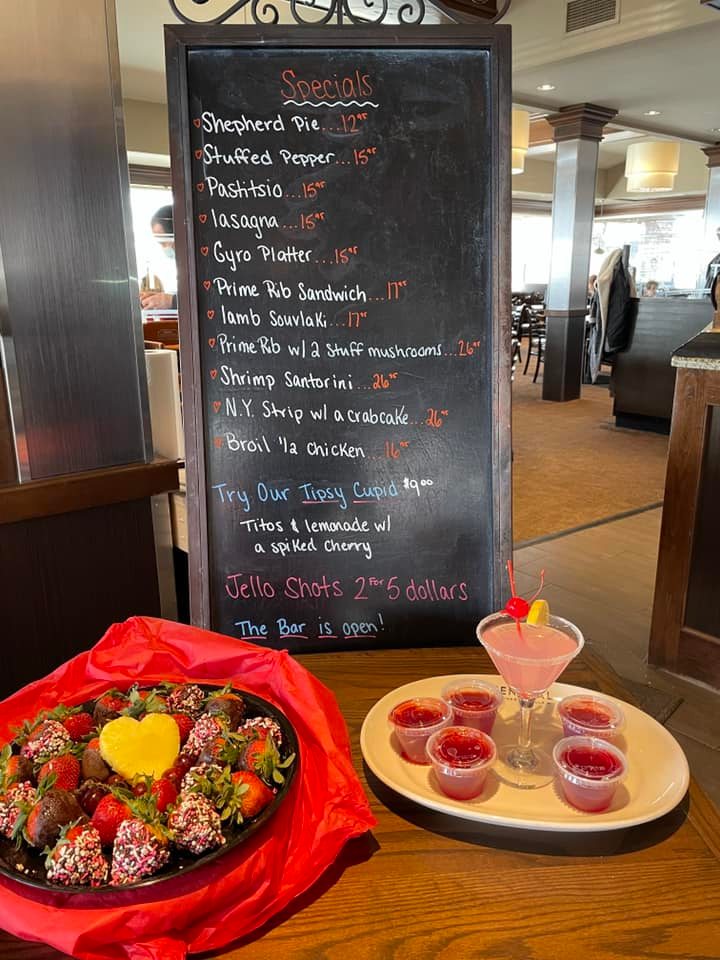 Specials
Shepherd Pie...12⁹⁵
Stuffed Pepper...15⁹⁵
Pastitsio...15⁹⁵
lasagna...15⁹⁵
Gyro Platter...15⁹⁵
Prime Rib Sandwich...17⁹⁵
lamb Souvlaki...17⁹⁵
Prime Rib w/ 2 stuff mushrooms...26⁹⁵
Shrimp Santorini...26⁹⁵
N.Y. Strip w/ a crabcake...26⁹⁵
Broil 1/2 chicken...16⁹⁵
Try Our Tipsy Cupid $9⁰⁰
Titos & lemonade w/
a spiked cherry
Jello Shots 2 For 5 dollars
The Bar is open!